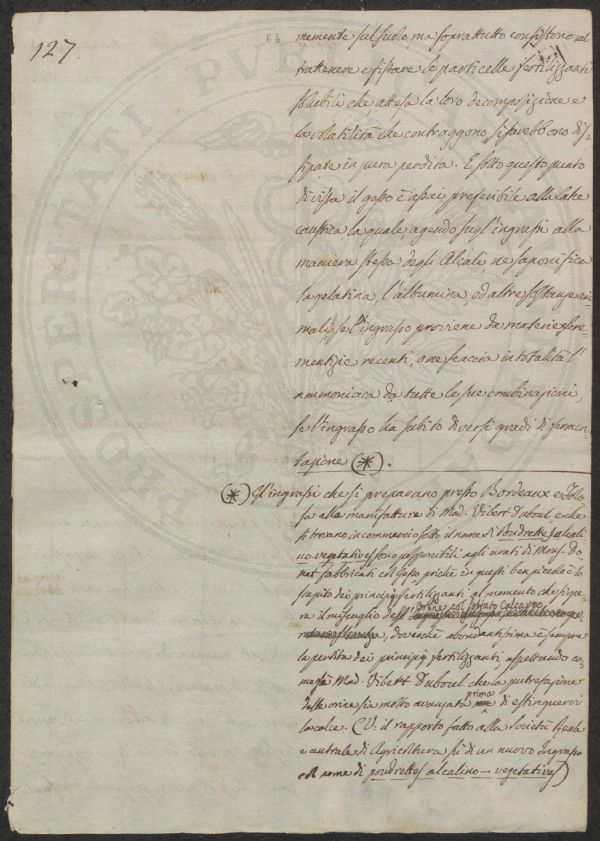 127.
64
memente sul suolo ma soprattutto consistono nel
trattenere e fissare le particelle fertilizzanti
solubili che attesa la loro decomposizione e
la volatilità che contraggono, si sarebbono dis-
sipate in pura perdita. E sotto questo punto
di vista il gesso è assai preferibile alla calce
caustica la quale, agendo sugl'ingrassi alla
maniera stessa degli Alcali, ne saponifica
la gelatina, l'albumina, od altre sostanze ani-
mali, se l'ingrasso proviene da materie
recenti, o ne scaccia in totalità l'
ammoniaca da tutte le sue combinazioni,
se l'ingrasso ha subito diversi gradi di fermen-
tazione (*).
(*) Gl'ingrassi che si preparano presso Bordeaux e Tolo
sa alla manifatture di Mad. Vibert Duboul e che
si trovano in commercio sotto il nome di Poudrettes alcali-
no-vegetatives sono posponibili agli unti di Mons. Do-
nat fabbricati col gesso, poichè in questi ben piccola è la
perdita dei principj fertilizzanti al momento che si ope-
ra il miscuglio dell' orine col solfato calcareo,
dovechè abondantissima è sempre
la perdita dei principj fertilizzanti, aspettando co-
me fa Mad. Vibert Duboul che la putrefazione
delle orine sia molto avanzata prima di estinguervi
la calce. (V. il rapporto fatto alla Società Reale
e centrale di Agricoltura di un nuovo ingrasso
col nome di poudrettes alcalino-vegetatives)
PROSPERITATI PUBLI